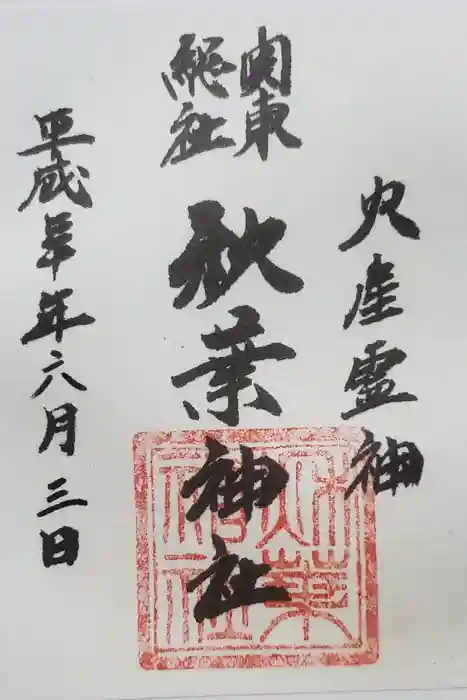 火産霊神
関東
総社
秋葉神社
平成年六月三日
秋葉
神社